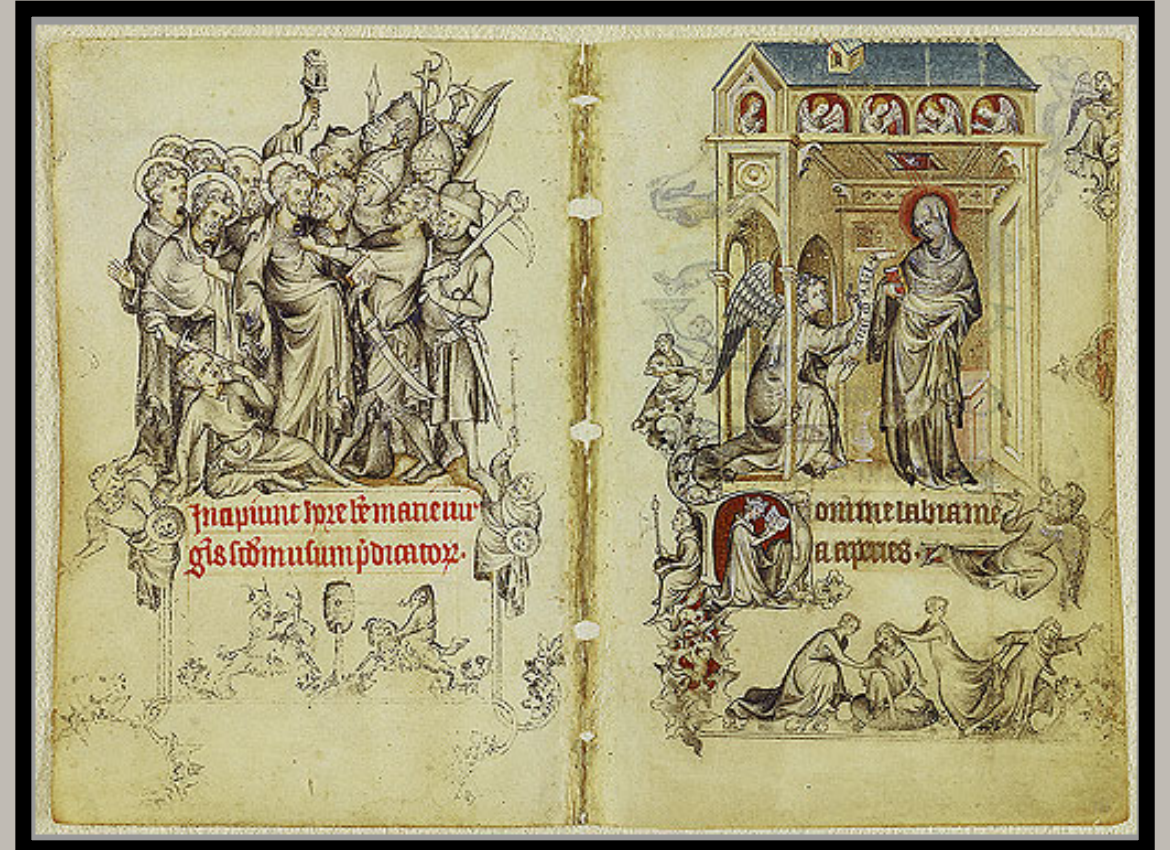 Incipiunt hore bē marie uir
gis scdm̄ usum p̄dicatoꝝ.
Domine labia me
a aperies.